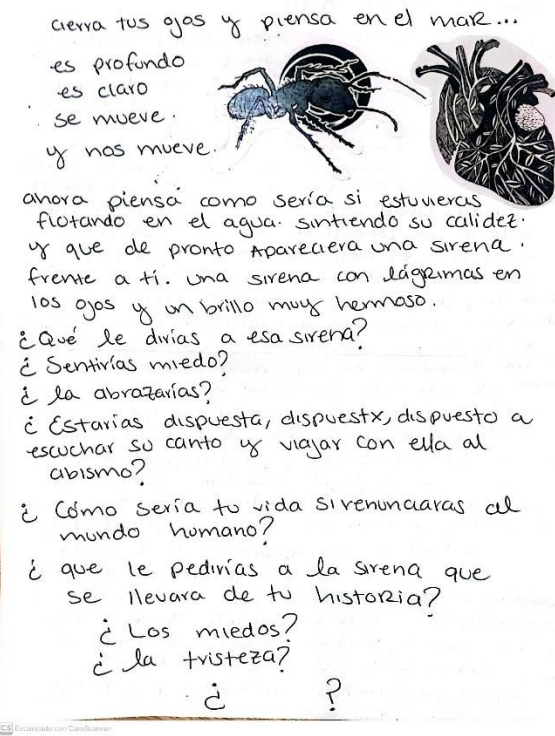 cierra tus ojos y piensa en el maR...
es profundo
es claro
se mueve.
y nos mueve.
ahora piensa como sería si estuvieras
flotando en el agua. sintiendo su calidez.
y que de pronto Apareciera una sirena.
frente a tí. una sirena con lágRimas en
los ojos y un brillo muy hermoso.
¿Qué le dirías a esa sirena?
¿Sentirías miedo?
¿la abrazarías?
¿Estarías dispuesta, dispuestx, dispuesto a
escuchar su canto y viajar con ella al
abismo?
¿Cómo sería tu vida si renunciaras al
mundo humano?
¿que le pedirías a la sirena que
se llevara de tu histoRia?
¿Los miedos?
¿la tristeza?
¿ ?
CS Escaneado con CamScanner